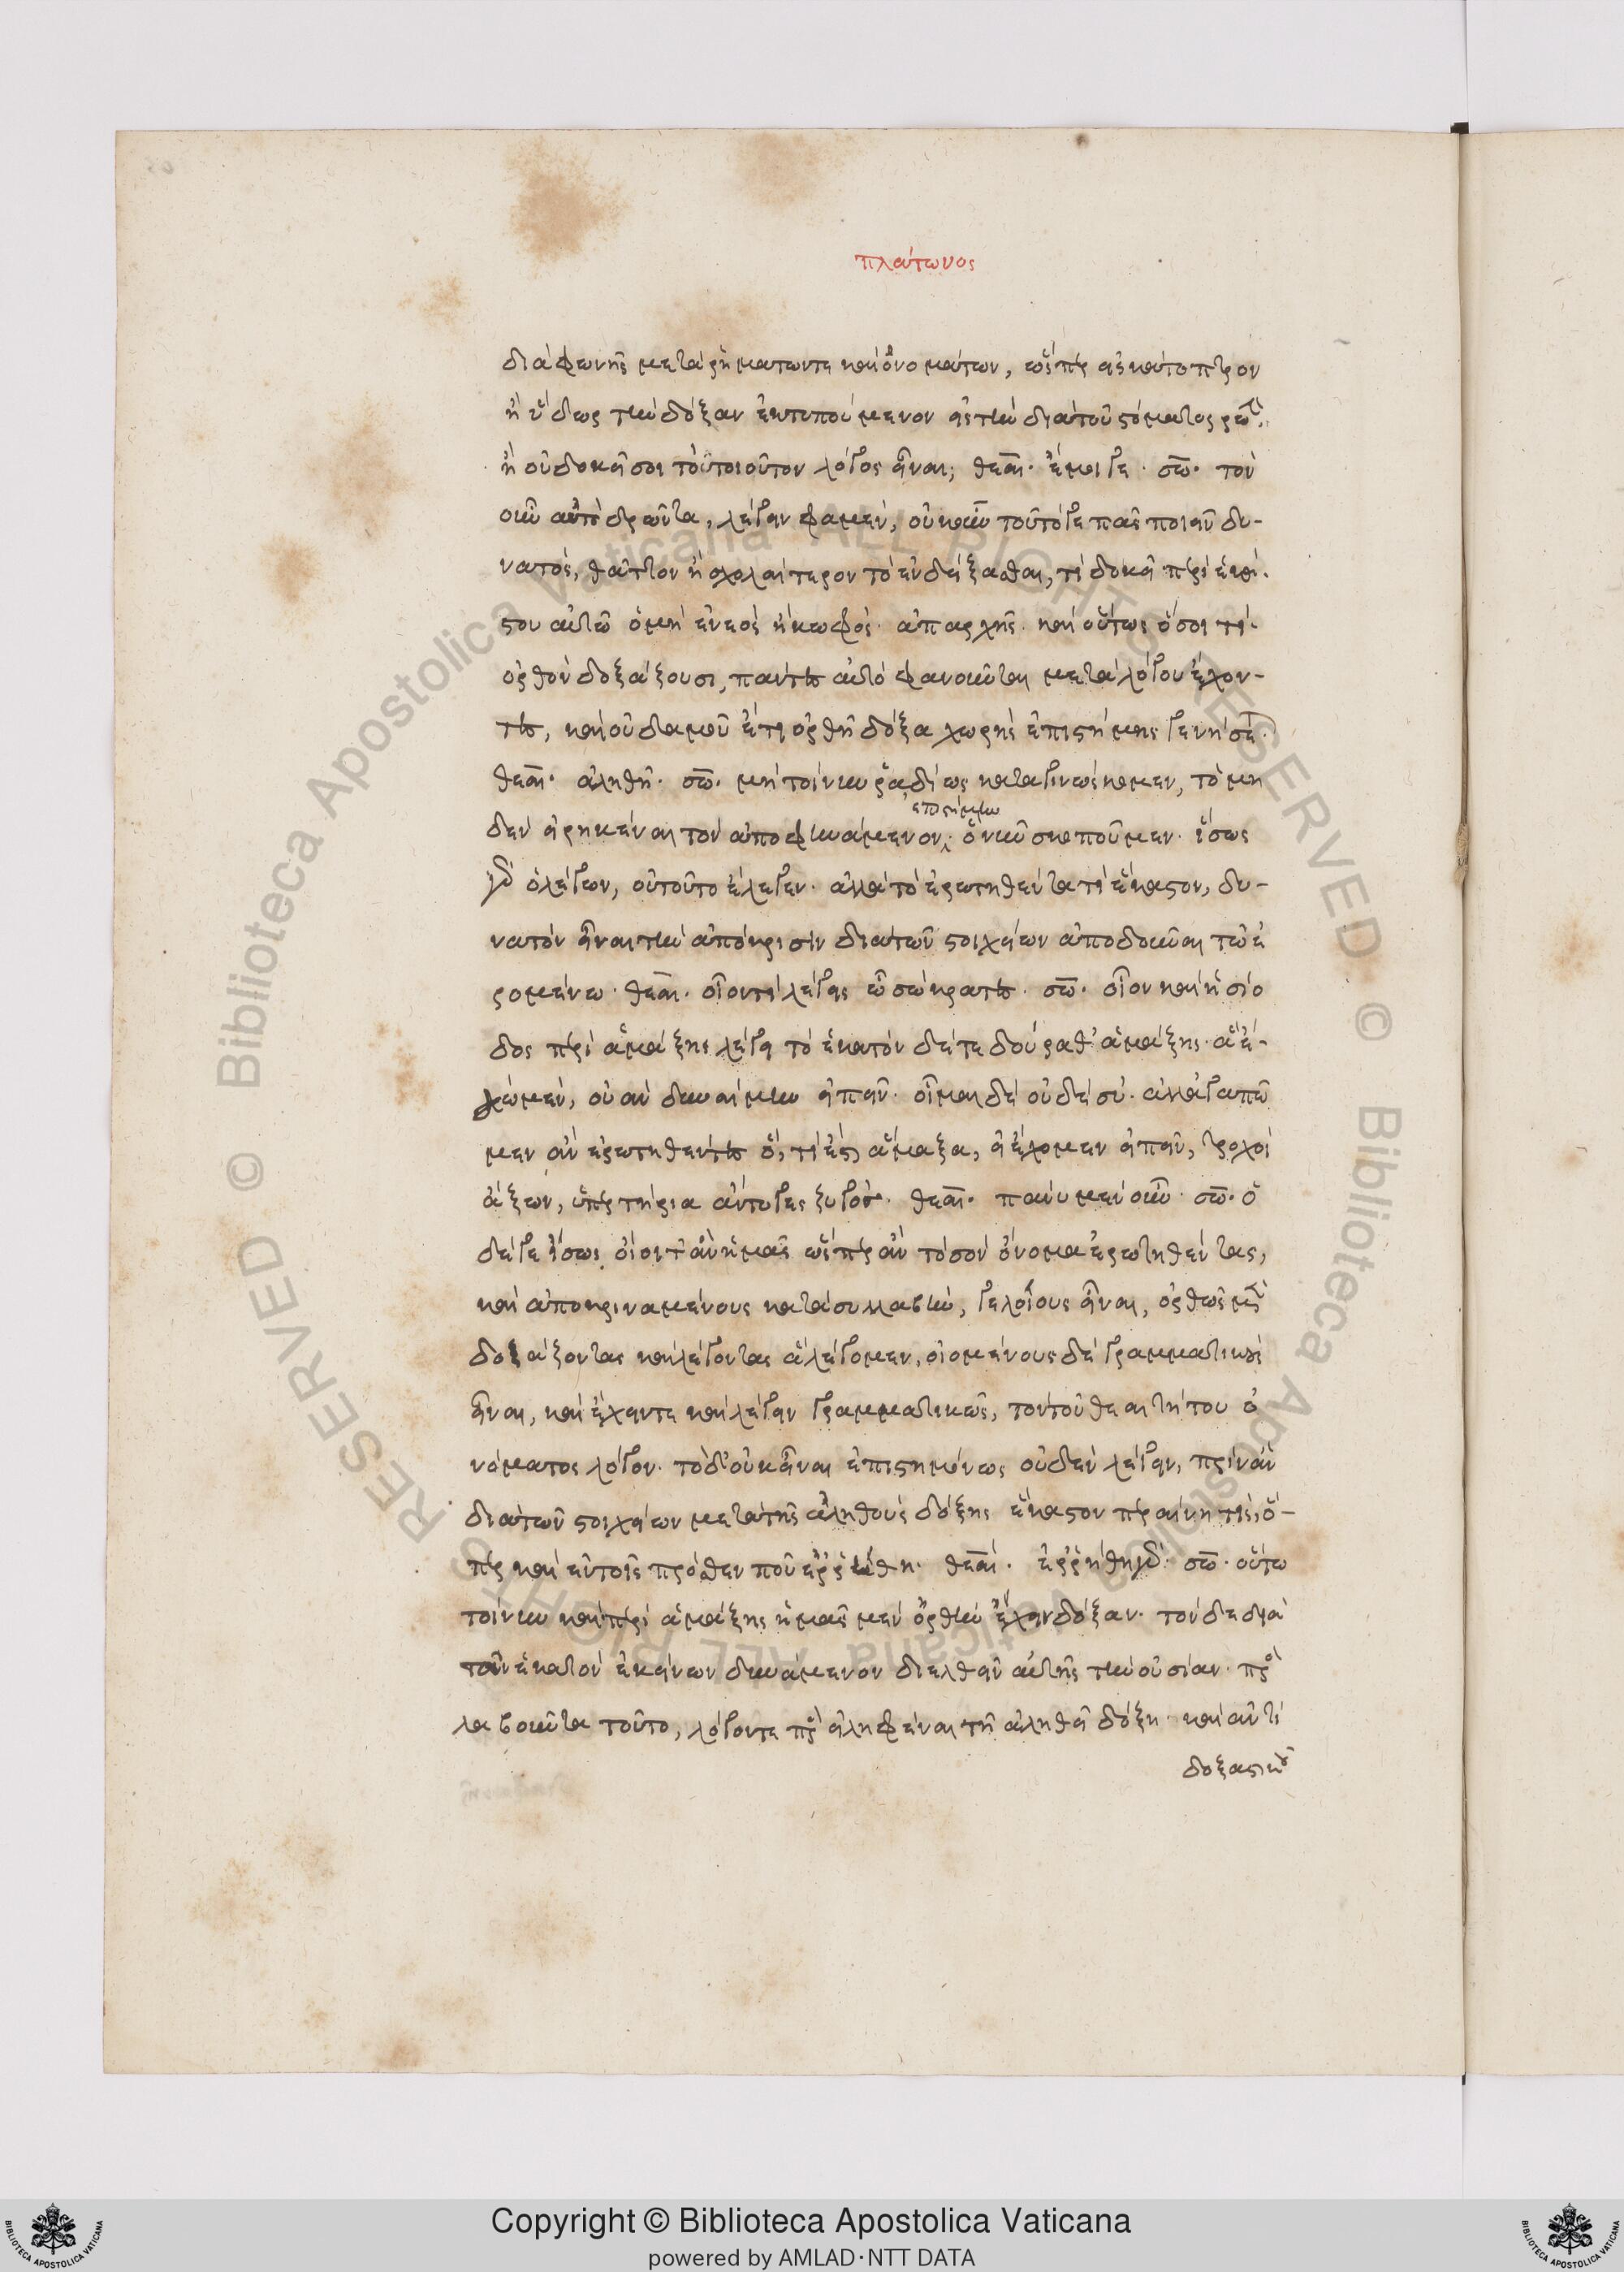 πλάτωνος
διὰ φωνῆς μετὰ ῥημάτων τε καὶ ὀνομάτων, ὥσπερ εἰς κάτοπτρον
ἢ ὕδωρ τὴν δόξαν ἐκτυπούμενον εἰς τὴν διὰ τοῦ στόματος ῥοήν.
ἢ οὐ δοκεῖ σοι τὸ τοιοῦτον λόγος εἶναι; θεαί. ἔμοιγε. σω. τὸν
οὖν αὐτὸ δρῶντα, λέγειν φαμέν, οὐκοῦν τοῦτό γε πᾶς ποιεῖν δυ-
νατός, θᾶττον ἢ σχολαίτερον τὸ ἐνδείξασθαι, τί δοκεῖ περὶ ἑκά-
στου αὐτῶ ὁ μὴ ἐνεὸς ἢ κωφὸς ἀπαρχῆς. καὶ οὕτως ὅσοι τι
ὀρθὸν δοξάζουσι, πάντες αὐτὸ φανοῦνται μετὰ λόγου ἔχον-
τες, καὶ οὐδαμοῦ ἔτι ὀρθὴ δόξα χωρὶς ἐπιστήμης γενήσεται.
θεαί. ἀληθῆ. σω. μὴ τοίνυν ῥαδίως καταγινώσκομεν, τὸ μη
δὲν εἰρηκέναι τὸν ἀποφηνάμενον ἐπιστήμην ὃ νῦν σκοποῦμεν. ἴσως
γὰρ ὁ λέγων, οὐ τοῦτο ἔλεγεν. ἀλλὰ τὸ ἐρωτηθέντα τί ἕκαστον, δυ-
νατὸν εἶναι τὴν ἀπόκρισιν διὰ τῶν στοιχείων ἀποδοῦναι τῶ ἐ
ρομένω. θεαί. οἷον τί λέγεις ὦ σώκρατες. σω. οἷον καὶ ἡσίο
δος περὶ ἁμάξης λέγει τὸ ἑκατὸν δέ τε δούραθ' ἁμάξης. ἃ ἐ-
γὼ μὲν, οὐ ἂν δυναίμην εἰπεῖν. οἶμαι δὲ οὐδὲ σύ. ἀλλ' ἀγαπῶ
μεν ἂν ἐρωτηθέντες ὅ, τί ἐστιν ἅμαξα, εἰ ἔχομεν εἰπεῖν, τροχοὶ
ἄξων, ὑπερτήρια ἄντυγες ζυγός. θεαί. πάνυ μὲν οὖν. σω. ὁ
δέ γε ἴσως οἴοιτ' ἂν ἡμᾶς ὥσπερ ἂν τὸ σὸν ὄνομα ἐρωτηθέντας,
καὶ ἀποκριναμένους κατὰ συλλαβὴν, γελοίους εἶναι, ὀρθῶς μὲν
δοξάζοντας καὶ λέγοντας ἃ λέγομεν, οἰομένους δὲ γραμματικοὶ
εἶναι, καὶ ἔχειν τε καὶ λέγειν γραμματικῶς, τὸν τοῦ θεαιτήτου ὀ
νόματος λόγον. τὸ δ' οὐκ εἶναι ἐπιστημόνως οὐδὲν λέγειν, πρὶν ἂν
διὰ τῶν στοιχείων μετὰ τῆς ἀληθοῦς δόξης ἕκαστον περαίνη τις, ὅ-
περ καὶ ἐν τοῖς πρόσθεν που ἐρρήθη. θεαί. ἐρρήθη γάρ. σω. οὕτω
τοίνυν καὶ περὶ ἁμάξης ἡμᾶς μὲν ὀρθὴν ἔχειν δόξαν. τὸν δὲ διὰ
τῶν ἑκατὸν ἐκείνων δυνάμενον διελθεῖν αὐτῆς τὴν οὐσίαν. προσ
λαβοῦντα τοῦτο, λόγον τε προσειληφέναι τῆ ἀληθεῖ δόξη. καὶ ἀντὶ
δοξαστικοῦ